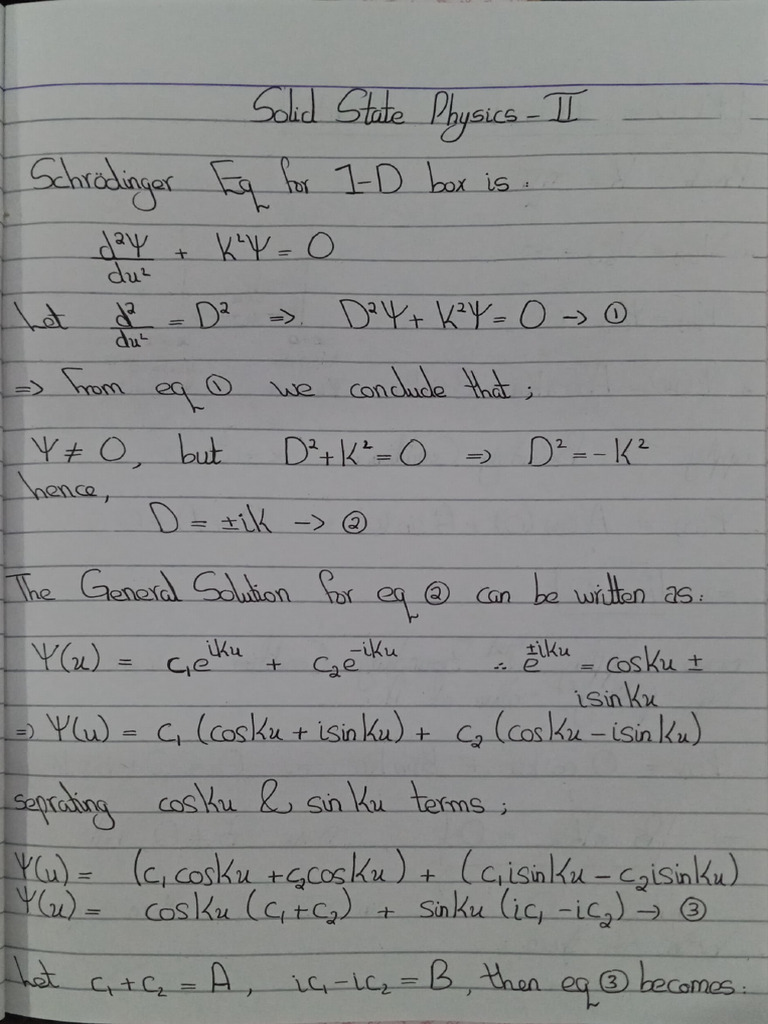 Solid State Physics - II
Schrödinger Eq for 1-D box is:
d²Ψ/du² + K²Ψ = 0
Let d²/du² = D² => D²Ψ + K²Ψ = 0 → ①
=> From eq ① we conclude that;
Ψ ≠ 0, but D² + K² = 0 => D² = -K²
hence,
D = ±ik → ②
The General Solution for eq ② can be written as:
Ψ(u) = c₁e^{iKu} + c₂e^{-iKu} ∴ e^{±iKu} = cosKu ±
isinKu
=> Ψ(u) = c₁ (cosKu + isinKu) + c₂ (cosKu - isinKu)
seprating cosKu & sinKu terms;
Ψ(u) = (c₁cosKu + c₂cosKu) + (c₁isinKu - c₂isinKu)
Ψ(u) = cosKu (c₁+c₂) + sinKu (ic₁ - ic₂) → ③
Let c₁+c₂ = A, ic₁-ic₂ = B, then eq ③ becomes: